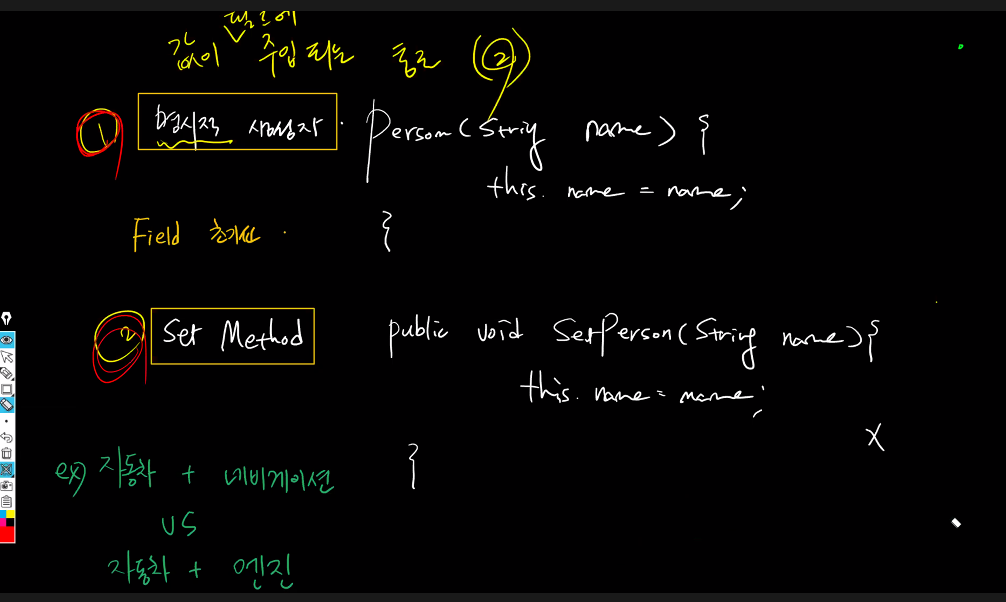 필드에
값이 주입되는 통로 (2)
1 명시적 생성자. Person(String name) {
this. name = name;
Field 초기화.
}
2 Set Method public void SetPerson(String name){
this. name = name;
X
ex) 자동차 + 네비게이션 }
VS
자동차 + 엔진